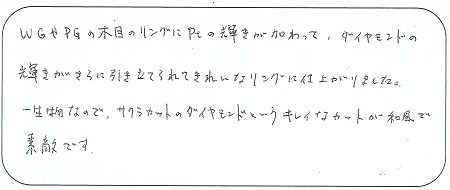 WGやPGの木目のリングにPtの輝きが加わって、ダイヤモンドの
輝きがさらに引き立てられてきれいなリングに仕上がりました。
一生物なので、サクラカットのダイヤモンドというキレイなカットが和風で
素敵です。